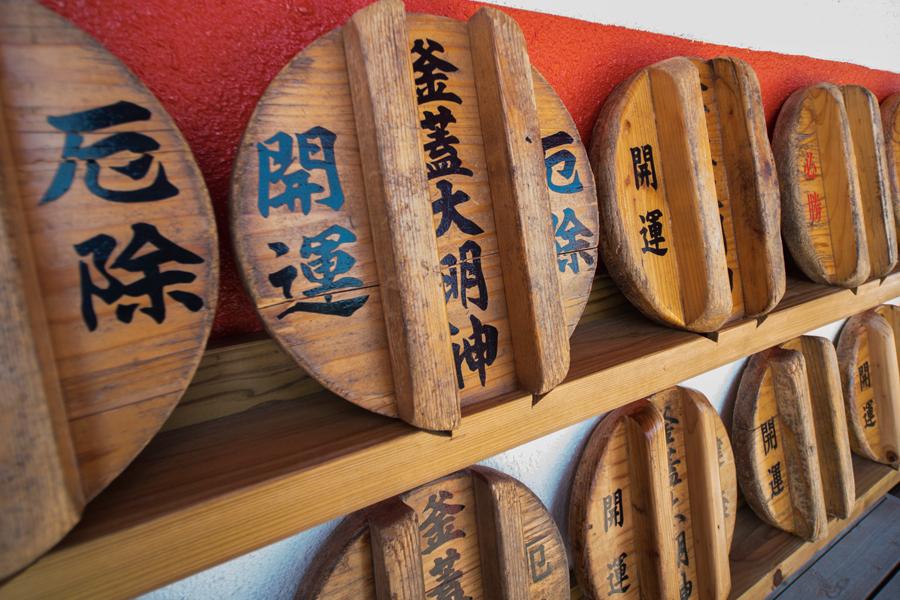 厄除
開運
釜蓋大明神
厄除
開運
必勝
釜蓋
厄
開運
開運
開運